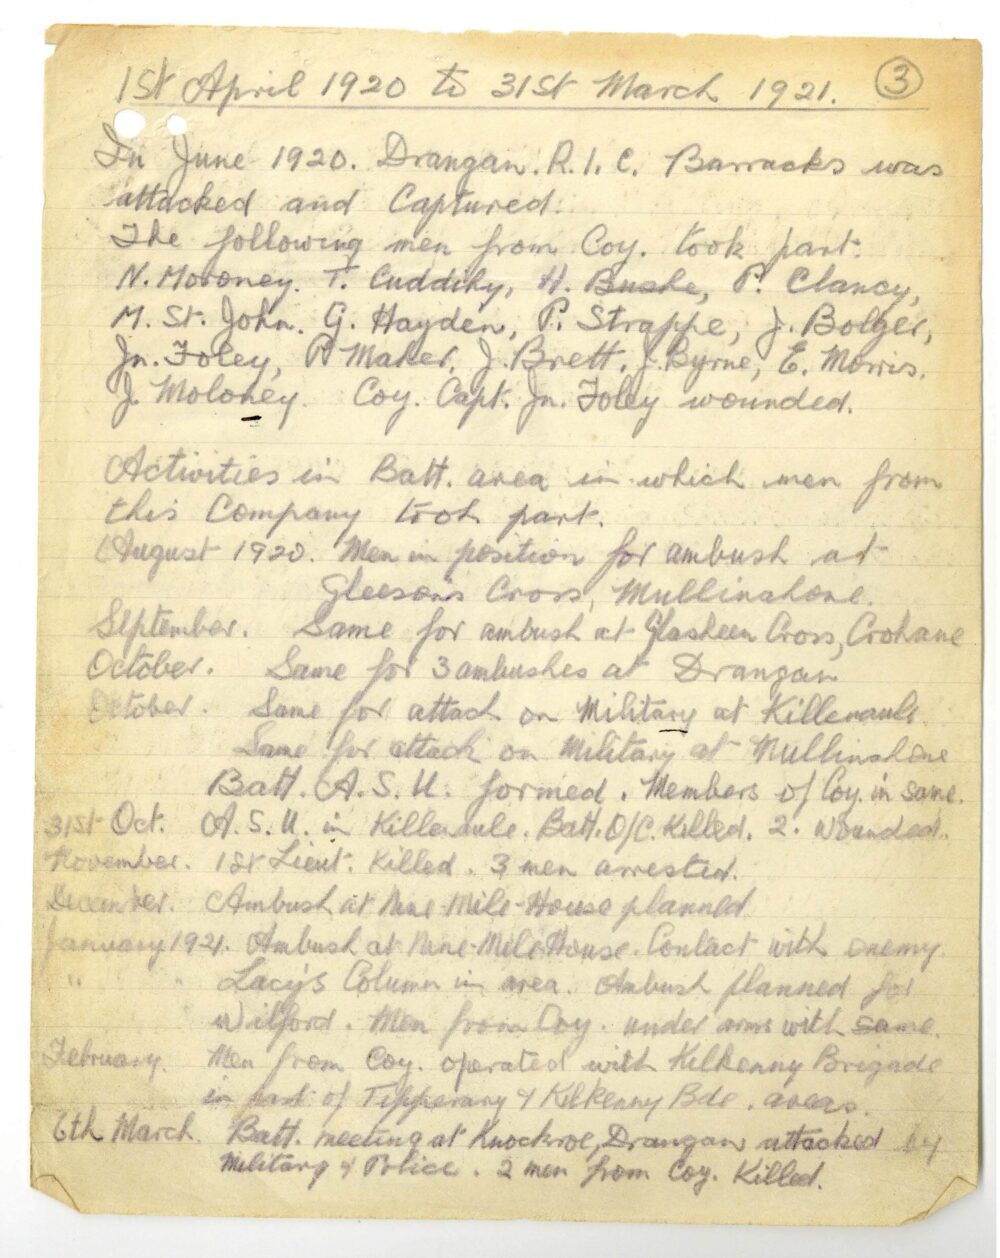 1st April 1920 to 31st March 1921. 3
In June 1920. Drangan. R.I.C. Barracks was
attacked and Captured.
The following men from Coy. took part.
N. Moroney. T. Cuddihy, H. Bushe, P. Clancy,
M. St. John. G. Hayden, P. Strappe, J. Bolger,
Jn. Foley, P. Maher, J. Brett. J. Byrne, E. Morris.
J. Moloney. Coy. Capt. Jn. Foley wounded.
Activities in Batt. area in which men from
this Company took part.
August 1920. Men in position for ambush at
Gleeson's Cross, Mullinahone.
September. Same for ambush at Glasheen Cross, Crohane
October. Same for 3 ambushes at Drangan
October. Same for attack on Military at Killenaule.
Same for attack on Military at Mullinahone
Batt. A.S.U. formed. Members of Coy. in same.
31st Oct. A.S.U. in Killenaule. Batt. O/C. Killed. 2. wounded.
November. 1st Lieut. Killed. 3 men arrested.
December. Ambush at Nine-Mile-House planned
January 1921. Ambush at Nine-Mile-House. Contact with enemy.
" " Lacy's Column in area. Ambush planned for
Wilford. Men from Coy. under arms with same.
February. Men from Coy. operated with Kilkenny Brigade
in part of Tipperary & Kilkenny Bde. areas.
6th March. Batt. meeting at Knockroe, Drangan attacked by
Military & Police. 2 men from Coy. Killed.